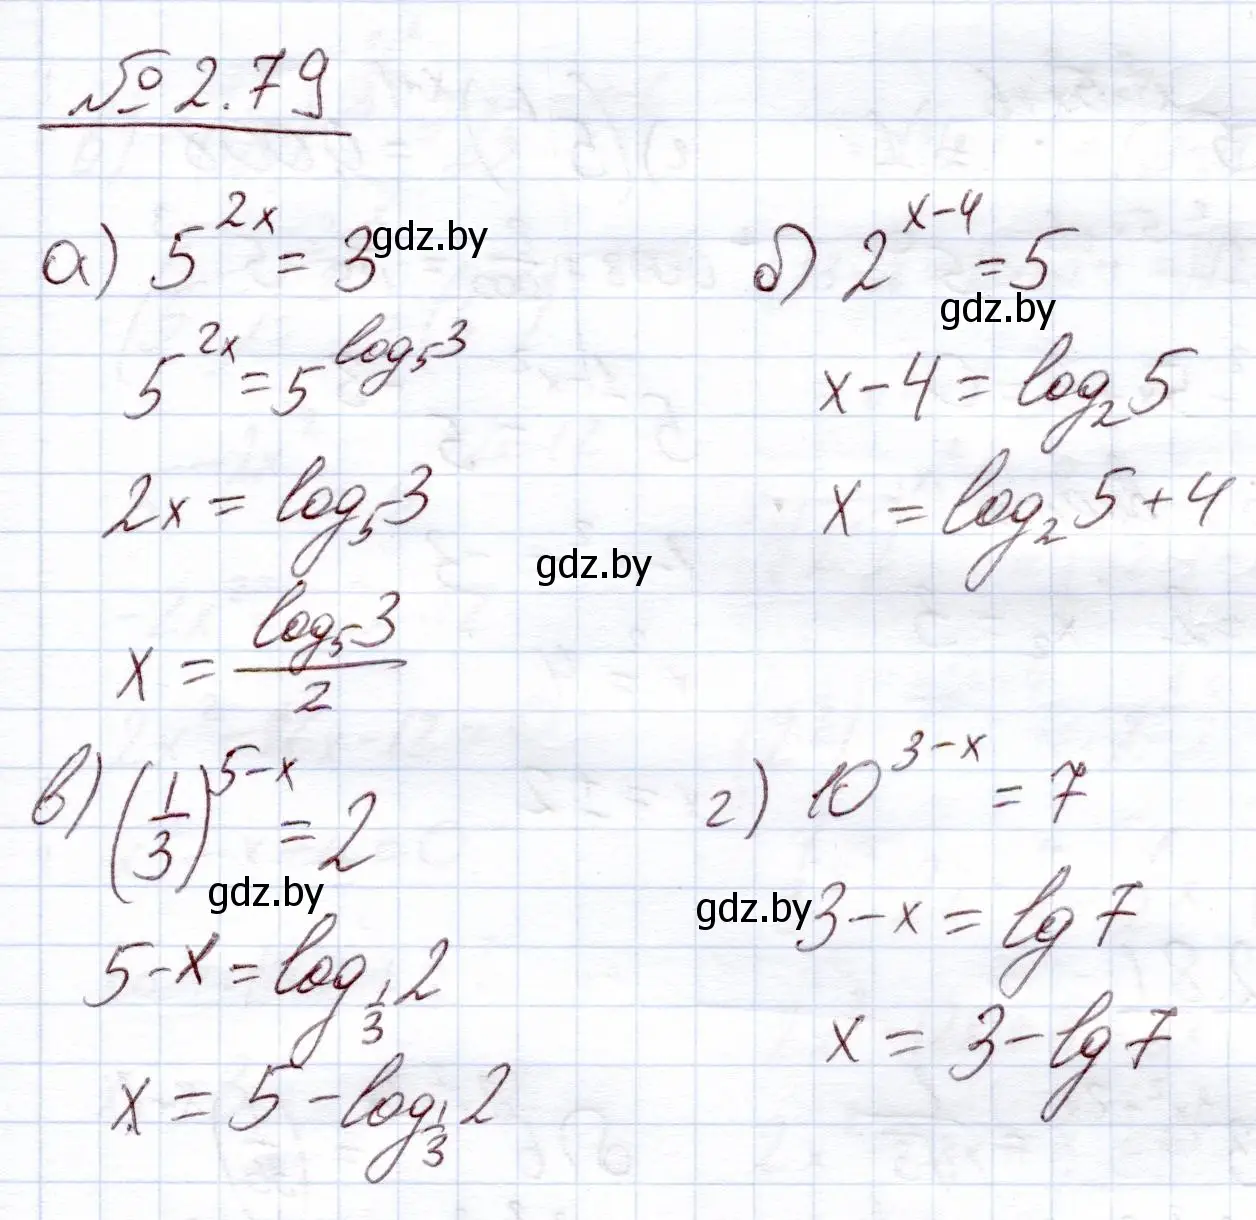 № 2.79
а) 5^{2x} = 3
gdz.by
5^{2x} = 5^{log_5 3}
2x = log_5 3
x = \frac{log_5 3}{2}
б) 2^{x-4} = 5
gdz.by
x - 4 = log_2 5
x = log_2 5 + 4
gdz.by
в) (\frac{1}{3})^{5-x} = 2
gdz.by
5 - x = log_{\frac{1}{3}} 2
x = 5 - log_{\frac{1}{3}} 2
г) 10^{3-x} = 7
gdz.by
3 - x = lg 7
x = 3 - lg 7